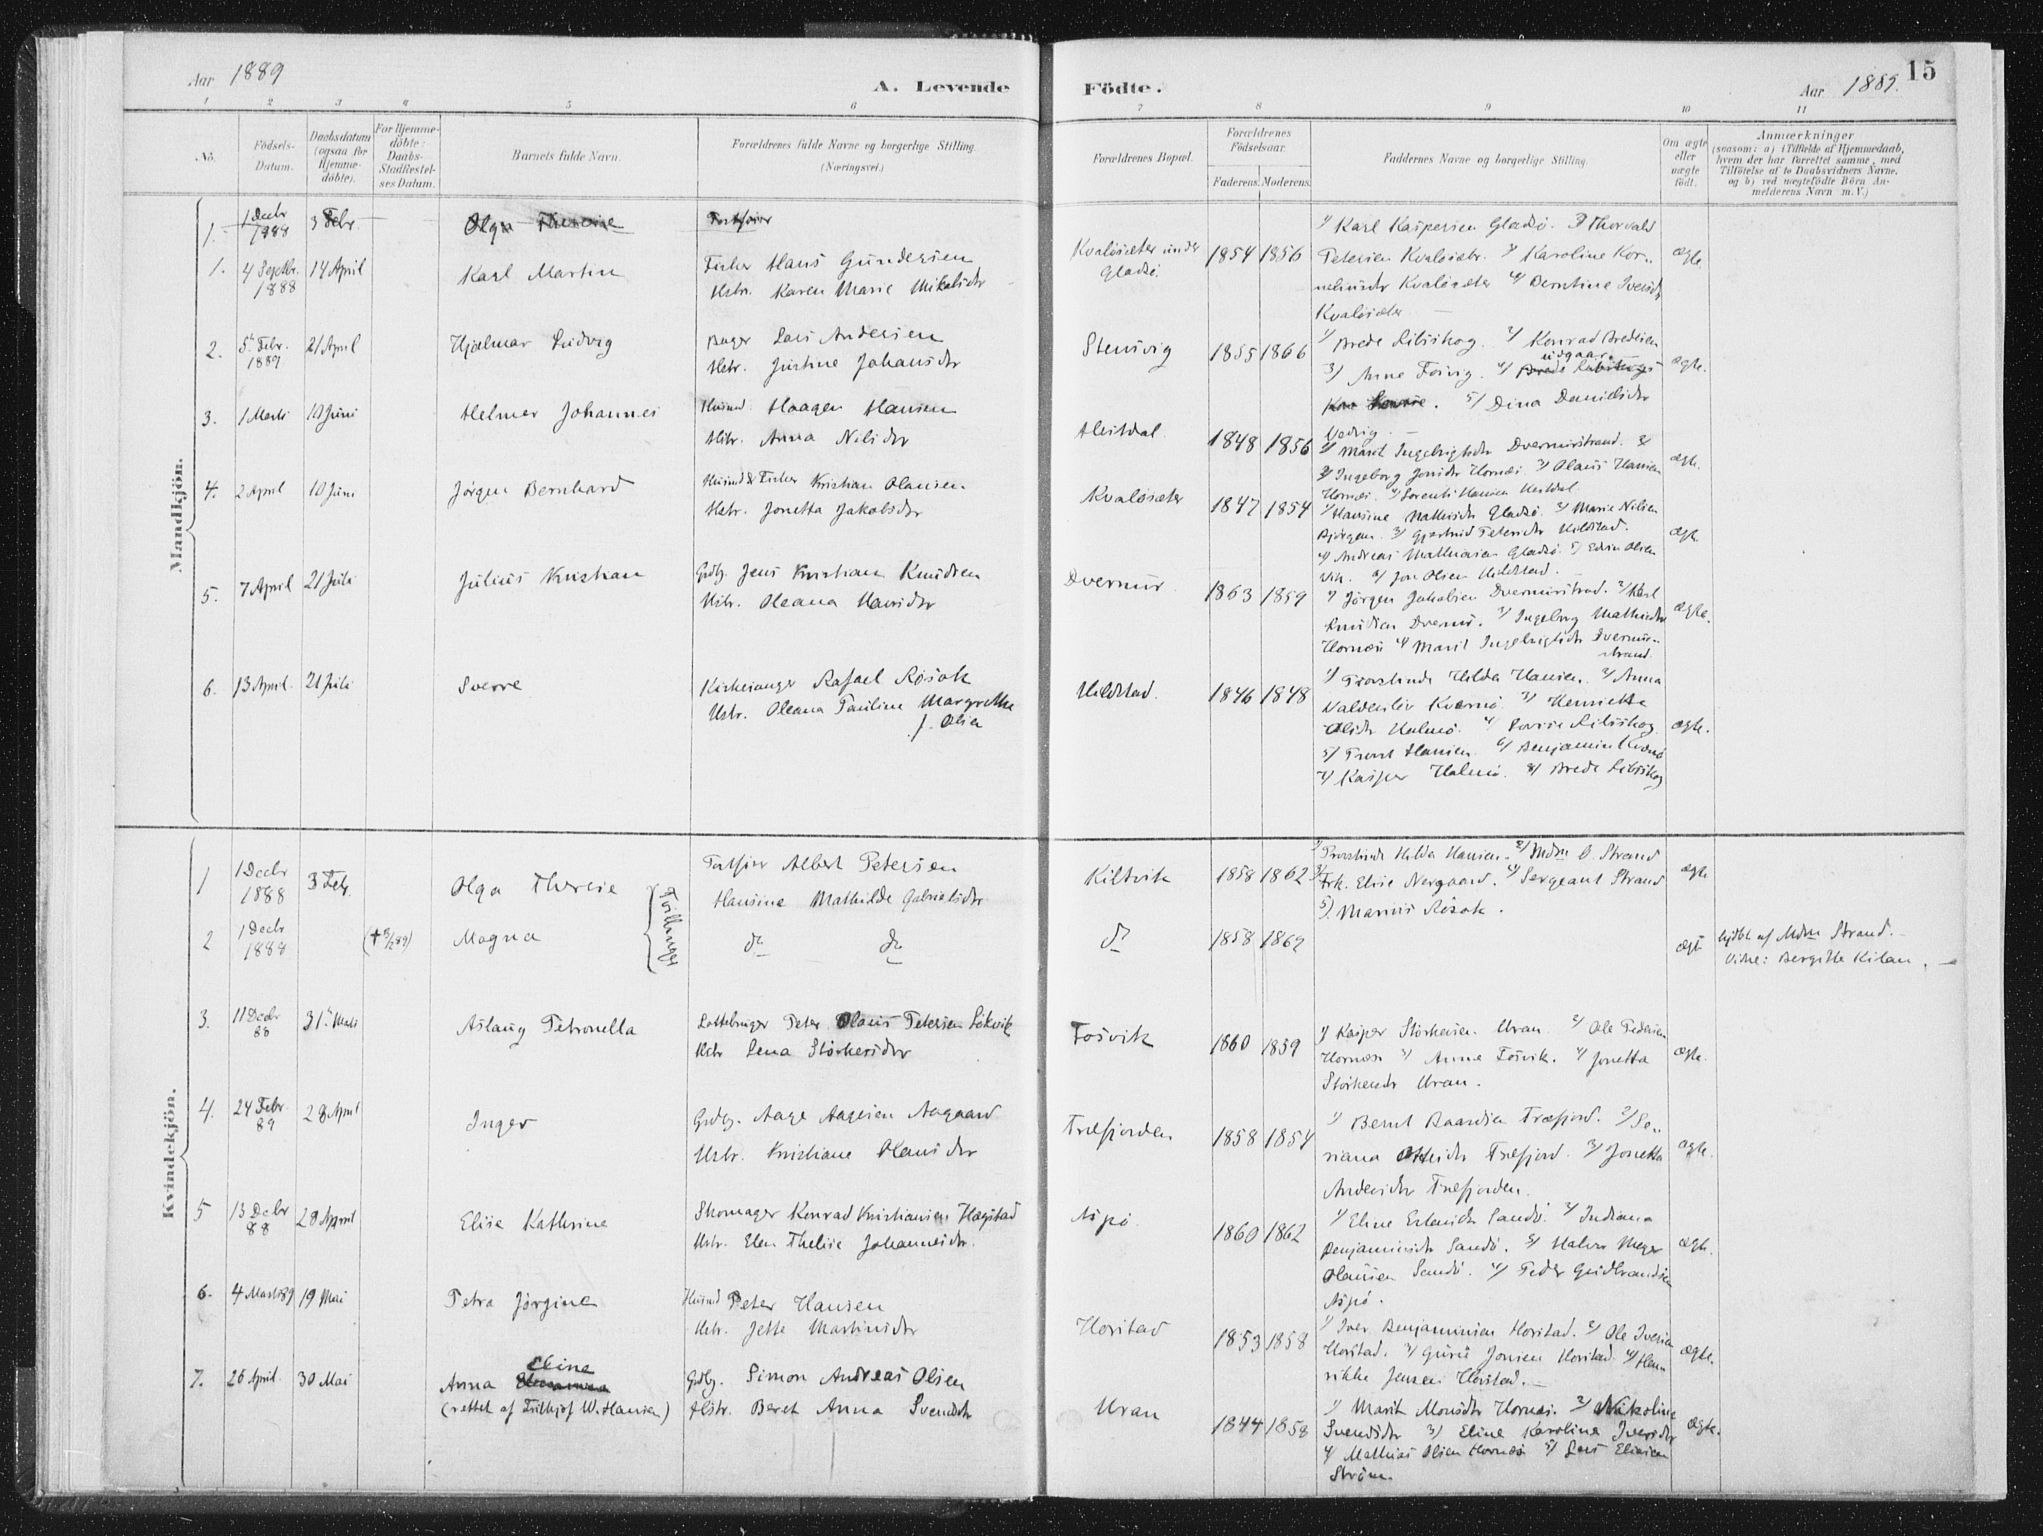 Aar 1889
A. Levende
Födte.
15
Aar 1889.
1 2 3 4 5 6 7 8 9 10 11
No.
Födsels-
Datum.
Daabsdatum
(ogsaa for
Hjemme-
döbte).
For Hjemme-
döbte:
Daabs-
Stadfæstel-
ses Datum.
Barnets fulde Navn.
Forældrenes fulde Navne og borgerlige Stilling.
(Næringsvei.)
Forældrenes Bopæl.
Forældrenes
Födselsaar.
Faderens. Moderens.
Faddernes Navne og borgerlige Stilling.
Om ægte
eller
uægte
født.
Anmærkninger
(saasom: a) i Tilfælde af Hjemmedaab,
hvem der har forrettet samme, med
Tilföielse af to Daabsvidners Navne,
og b) ved uægtefödte Börn An-
melderens Navn m. V.)
Mandkjön.
1. 1 Decbr 1888 3 Febr Olga Therese
1. 4 Septbr. 1888 14 April Karl Martin
Fisker Hans Gundersen
Hstr. Karen Marie Mikalsdtr
Kvalösæter under
Gladsö
1854 1856
1/ Karl Kaspersen Gladsö. 2/ Thorvald
Petersen Kvalösætr. 3/ Karoline Kor-
neliusdtr Kvalösæter 4/ Berntine Iversdtr
Kvalösæter
ægte.
2. 5te Febr. 1889 21 April Hjalmar Ludvig
Bager Lars Andersen
Hstr. Justine Johansdtr
Stensvig
1855 1866
1/ Brede Ribskog. 2/ Konrad Bredesen
udgaar
3/ Anne Fosvig. 4/
5/ Dina Danielsdtr
ægte.
3. 1 Marts 10 Juni Helmer Johannes
Husmd. Haagen Hansen
Hstr. Anna Nilsdtr
Hestdal
1848 1856
1/ Marit Ingebrigtsdtr Dvermustrand. 2/
Ingeborg Jonsdtr Hornæs. 3/ Olaus Hansen
Hornæs. 4/ Lorents Hansen Hestdal
ægte.
4. 2 April 10 Juni Jörgen Bernhard
Husmd & Fisker Kristian Olausen
Hstr. Jonetta Jakobsdtr
Kvalösæter
1847 1854
1/ Hansine Mathisdtr Gladsö. 2/ Marie Nilsen
Bjørgan. 3/ Gjertrud Petersdtr Hildstad.
4/ Andreas Mathiasen Gladsö. 5/ Edvin Olsen
Vik. 6/ Jon Olsen Hildstad.
ægte.
5. 7 April 21 Juli Julius Kristian
Grdbr. Jens Kristian Knudsen
Hstr. Oleana Hansdtr
Dvermur
1863 1859
1/ Jörgen Jakobsen Dvermustrand. 2/ Karl
Knudsen Dvermo. 3/ Ingeborg Mathisdtr
Hornæs 4/ Marit Ingebrigtsdtr Dvermu-
strand.
ægte.
6. 13 April. 21 Juli Sverre
Kirkesanger Rafael Rösok
Hstr. Oleana Pauline Margrethe
f. Olsen
Hildstad.
1846 1848
1/ Provstinde Hilda Hansen. 2/ Anna
Valdersløv Kvernö 3/ Henriette
Olsdtr Halmö. 4/ Lovise Ribskog
5/ Provst Hansen. 6/ Benjamin Kvernö
7/ Kasper Halmö. 8/ Brede Ribskog
ægte.
Kvindekjön.
1 1 Decbr 1888 3 Febr. Olga Therese
Tvillinger
Fortfører Albert Petersen
Hansine Mathilde Gabrielsdtr
Kiltvik
1858 1862
1/ Provstinde Hilda Hansen. 2/ Mdm O. Strand
3/ Frk. Elise Nergaard. 4/ Sergeant Strand
5/. Marius Rösok.
ægte
2 1 Decbr 1888 († 8/2 89) Magna
do do
do
1858 1862
ægte
hjdbt af Mdm Strand.
Vidne: Bergitte Kilan.
3. 11 Decbr 88 31te Marts Aslaug Petronella
Lottebruger Peter Olaus Petersen Lökvik
Hstr Lena Störkersdtr
Fosvik
1860 1859
1/ Kasper Störkersen Uran 2/ Ole Pedersen
Hornæs 3/ Anne Fosvik. 4/ Jonetta
Störkersdtr Uran.
ægte.
4. 24 Febr 89 28 April Inger
Grdbr. Aage Aagesen Aagaard
Hstr. Kristiane Olausdtr
Træfjorden
1858 1854
1/ Bernt Baardsen Træfjord. 2/ Se-
riana Ottesdtr Træfjord. 3/ Jonetta
Andersdtr Træfjorden.
ægte.
5 13 Decbr 88 28 April Elise Kathrine
Skomager Konrad Kristiansen Hægstad
Hstr. Elen Thelise Johannesdtr.
Aspö
1860 1862
1/ Eline Erlandsdtr Sandö. 2/ Indiana
Benjaminsdtr Sandö. 3/ Halvor Meyer
Olausen Sandö. 4/ Peder Guldbrandsen
Aspö.
ægte.
6. 4 Marts 89 19 Mai Petra Jörgine
Husmd Peter Hansen
Hstr. Jette Martinusdtr
Horstad
1853 1858
1/ Iver Benjaminsen Horstad. 2/ Ole Iversen
Horstad. 3/ Guru Jonsen Horstad 4/ Hen-
rikke Jensen Horstad.
ægte.
7. 26 April. 30 Mai Anna Eline
(rettet af Fridtjof W. Hansen)
Grdbr. Simon Andreas Olsen
Hstr. Beret Anna Svendsdtr
Uran
1844 1858
1/ Marit Monsdtr Hornæs. 2/ Nikoline
Svendsdtr 3/ Eline Karoline Iversdtr
4/ Mathias Olsen Hornæs 5/ Lars Eliasen
Ström.
ægte.